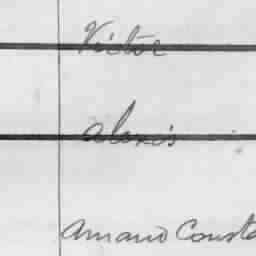 Victor
Alexis
Amand Consta